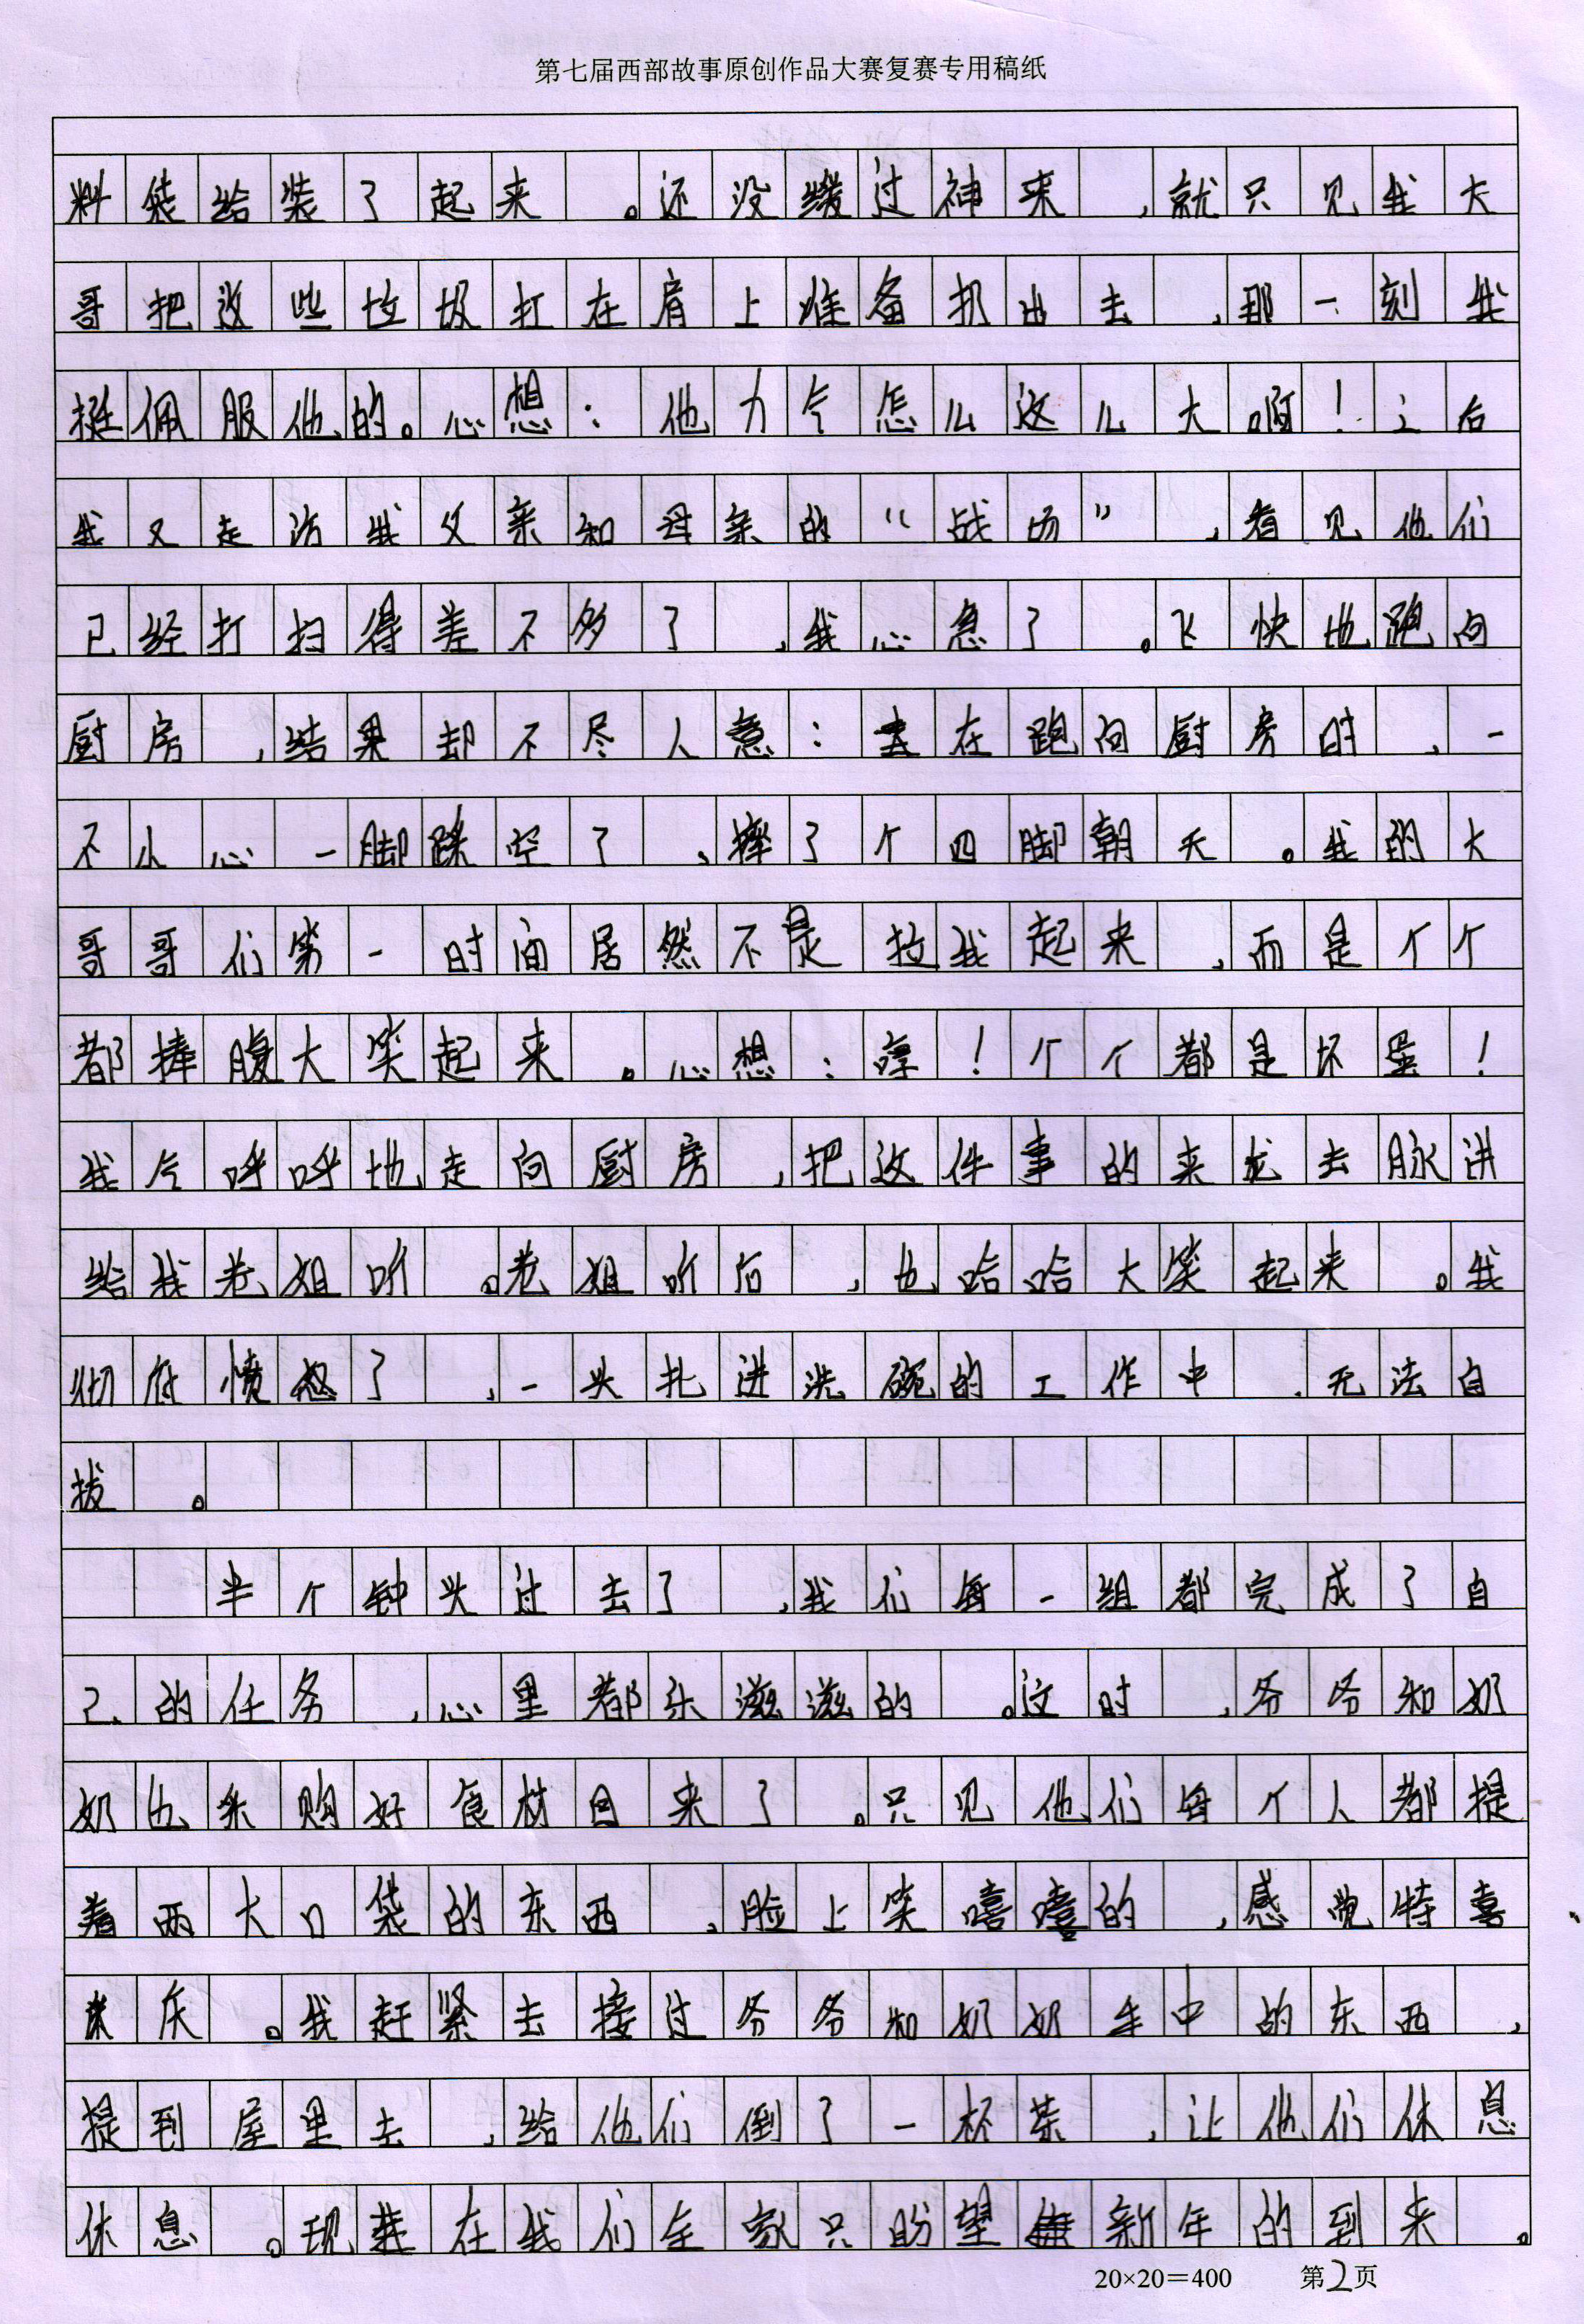 第七届西部故事原创作品大赛复赛专用稿纸
料袋给装了起来。还没缓过神来,就只见我大
哥把这些垃圾扛在肩上准备扔出去,那一刻我
挺佩服他的。心想:他力气怎么这么大啊!之后
我又走访我父亲和母亲的“战场”,看见他们
已经打扫得差不多了,我心急了。飞快地跑向
厨房,结果却不尽人意:在跑向厨房时,一
不小心一脚踩空了,摔了个四脚朝天。我的大
哥哥们第一时间居然不是拉我起来,而是个个
都捧腹大笑起来。心想:哼!个个都是坏蛋!
我气呼呼地走向厨房,把这件事的来龙去脉讲
给我老姐听。老姐听后,也哈哈大笑起来。我
彻底愤怒了,一头扎进洗碗的工作中,无法自
拔。
半个钟头过去了,我们每一组都完成了自
己的任务,心里都乐滋滋的。这时,爷爷和奶
奶也采购好食材回来了。只见他们每个人都提
着两大口袋的东西,脸上笑嘻嘻的,感觉特喜
庆。我赶紧去接过爷爷和奶奶手中的东西,
提到屋里去,给他们倒了一杯茶,让他们休息
休息。现在我们全家只盼望新年的到来。
20×20=400 第2页